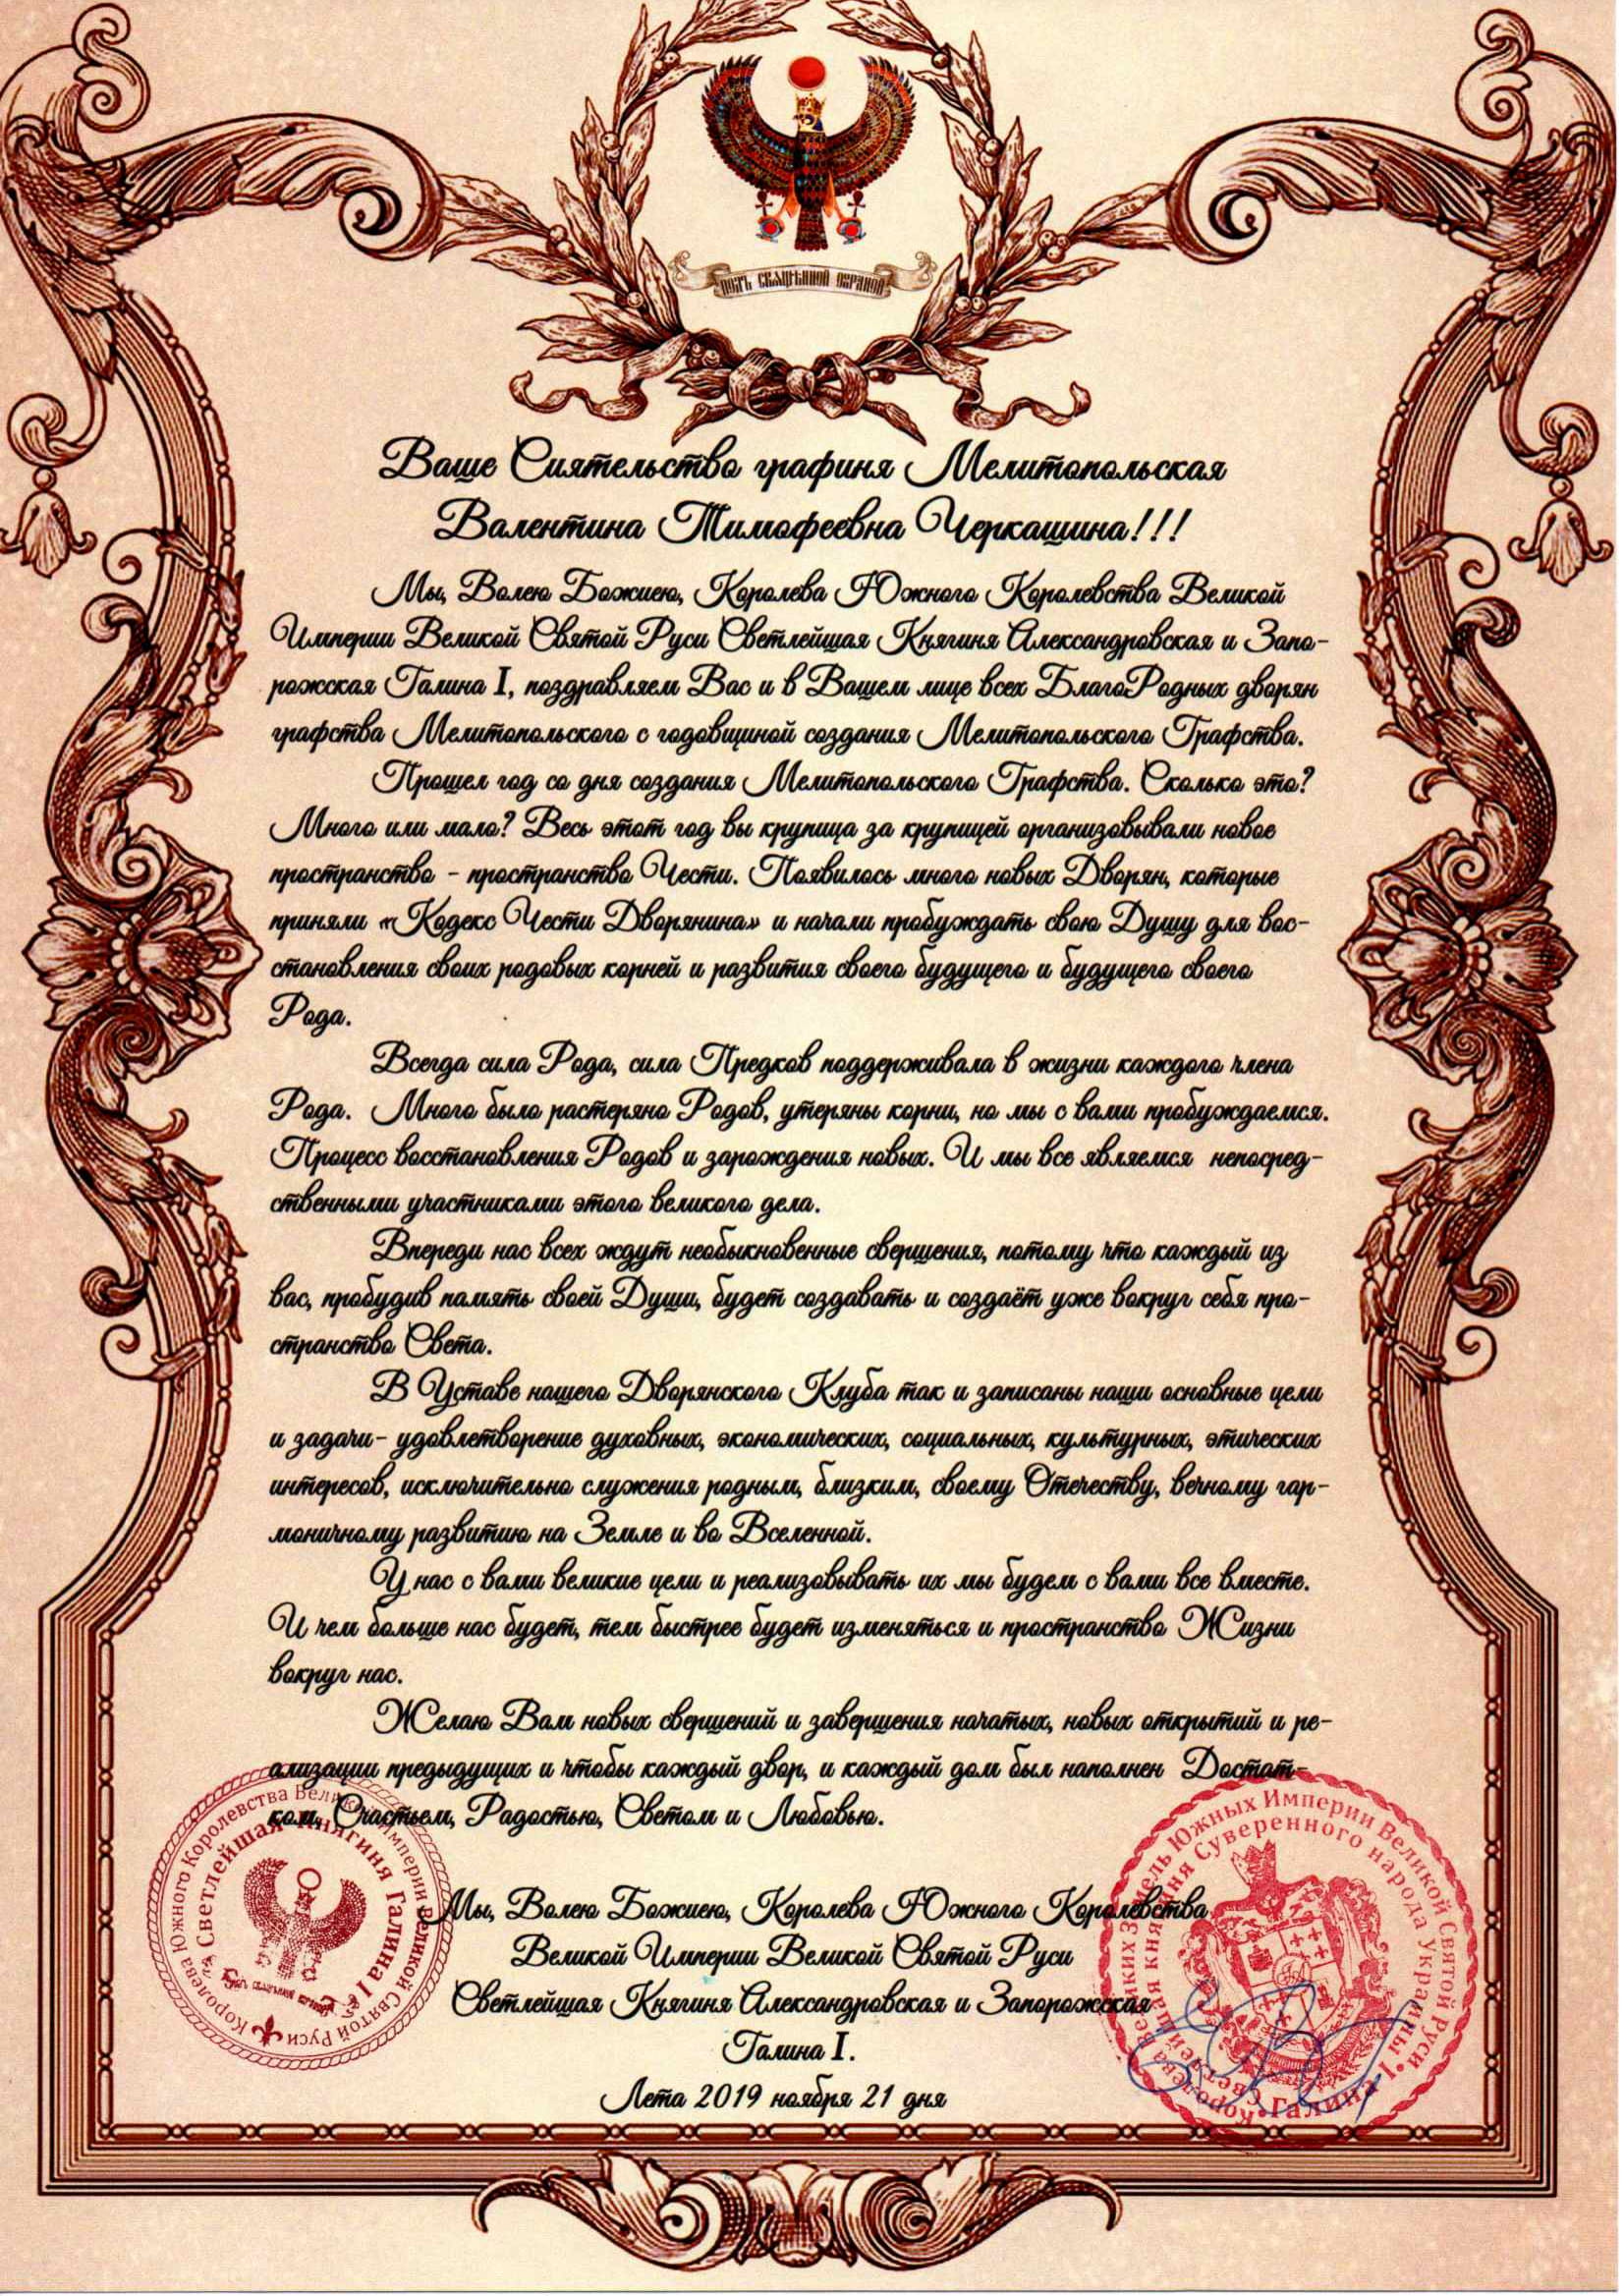 подъ священной охраной
Ваше Сиятельство графиня Мелитопольская
Валентина Тимофеевна Черкашина!!!
Мы, Волею Божиею, Королева Южного Королевства Великой
Империи Великой Святой Руси Светлейшая Княгиня Александровская и Запо-
рожская Галина I, поздравляем Вас и в Вашем лице всех БлагоРодных дворян
графства Мелитопольского с годовщиной создания Мелитопольского Графства.
Прошел год со дня создания Мелитопольского Графства. Сколько это?
Много или мало? Весь этот год вы крупица за крупицей организовывали новое
пространство - пространство Чести. Появилось много новых Дворян, которые
приняли «Кодекс Чести Дворянина» и начали пробуждать свою Душу для вос-
становления своих родовых корней и развития своего будущего и будущего своего
Рода.
Всегда сила Рода, сила Предков поддерживала в жизни каждого члена
Рода. Много было растеряно Родов, утеряны корни, но мы с вами пробуждаемся.
Процесс восстановления Родов и зарождения новых. И мы все являемся непосред-
ственными участниками этого великого дела.
Впереди нас всех ждут необыкновенные свершения, потому что каждый из
вас, пробудив память своей Души, будет создавать и создаёт уже вокруг себя про-
странство Света.
В Уставе нашего Дворянского Клуба так и записаны наши основные цели
и задачи- удовлетворение духовных, экономических, социальных, культурных, этических
интересов, исключительно служения родным, близким, своему Отечеству, вечному гар-
моничному развитию на Земле и во Вселенной.
У нас с вами великие цели и реализовывать их мы будем с вами все вместе.
И чем больше нас будет, тем быстрее будет изменяться и пространство Жизни
вокруг нас.
Желаю Вам новых свершений и завершения начатых, новых открытий и ре-
ализации предыдущих и чтобы каждый двор, и каждый дом был наполнен Достат-
ком, Счастьем, Радостью, Светом и Любовью.
Мы, Волею Божиею, Королева Южного Королевства
Великой Империи Великой Святой Руси
Светлейшая Княгиня Александровская и Запорожская
Галина I.
Лета 2019 ноября 21 дня
Королева Южного Королевства Великой Империи Великой Святой Руси
Светлейшая Княгиня Галина I
Королева Великих Земель Южных Империи Великой Святой Руси
Светлейшая княгиня Суверенного народа Украины
Галина I